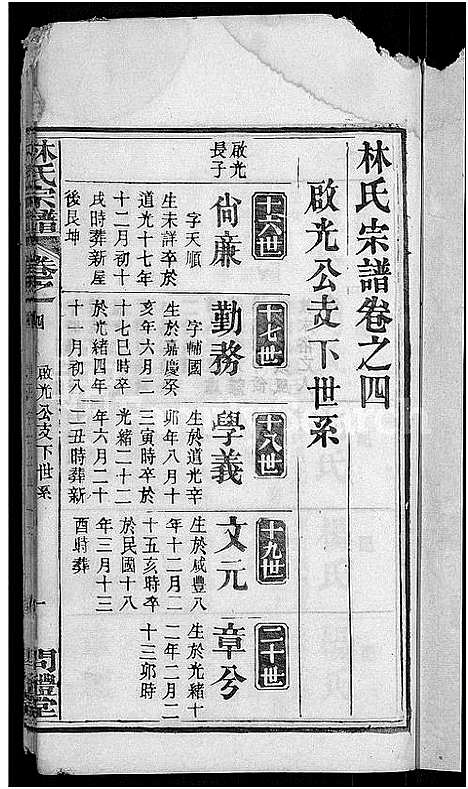 林氏宗譜卷之四
啟光公支下世系
十六世
啟光
長子
尙廉
字天順
生未詳卒於
道光十七年
十二月初十
戌時葬新屋
後艮坤
十七世
勤務
字輔國
生於嘉慶癸
亥年六月二
十七巳時卒
於光緒四年
十一月初八
十八世
學義
生於道光辛
卯年八月十
三寅時卒於
光緒二十二
年六月二十
二丑時葬新
十九世
文元
生於咸豐八
年十二月二
十五亥時卒
於民國十八
年三月十三
酉時葬
二十世
章兮
生於光緒十
二年二月二
十三卯時
林氏宗譜
卷之四
啟光公支下世系
一
問禮堂